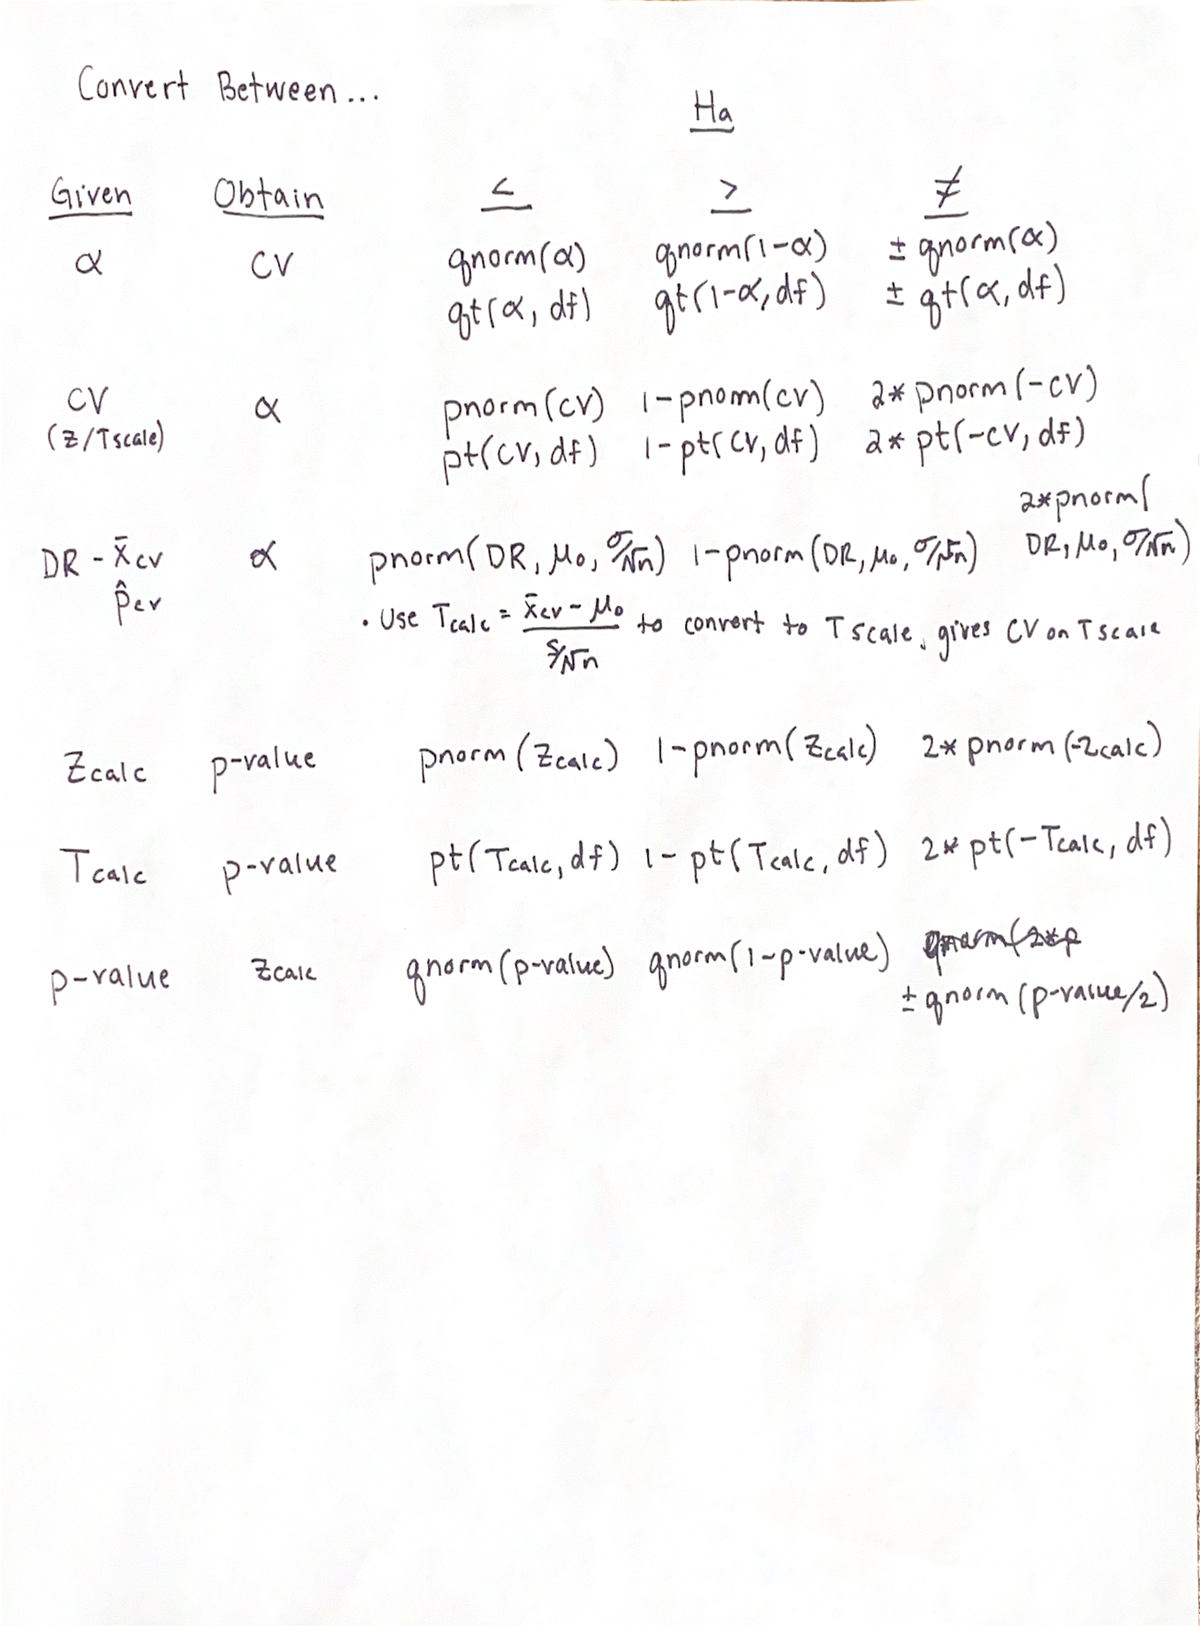 Convert Between...
Ha
Given Obtain < > ≠
α CV qnorm(α) qnorm(1-α) ± qnorm(α)
qt(α, df) qt(1-α, df) ± qt(α, df)
CV α pnorm(CV) 1-pnorm(CV) 2* pnorm(-CV)
(Z/T scale) pt(CV, df) 1-pt(CV, df) 2* pt(-CV, df)
2*pnorm(
DR - x̄cv α pnorm(DR, μ₀, σ/√n) 1-pnorm(DR, μ₀, σ/√n) DR, μ₀, σ/√n)
p̂cv
• Use Tcalc = x̄cv - μ₀ / s/√n to convert to T scale, gives CV on T scale
Zcalc p-value pnorm(Zcalc) 1-pnorm(Zcalc) 2* pnorm(-Zcalc)
Tcalc p-value pt(Tcalc, df) 1-pt(Tcalc, df) 2* pt(-Tcalc, df)
qnorm(2*p
p-value Zcalc qnorm(p-value) qnorm(1-p-value) ± qnorm(p-value/2)